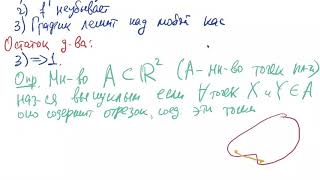 2) f' неубывает
3) График лежит над любой кас
Остаток д-ва:
3) => 1.
Опр. Мн-во A ⊂ ℝ² (A - мн-во точек пл-з)
наз-ся выпуклым если ∀ точек X и Y ∈ A
оно содержит отрезок, соед эти точки